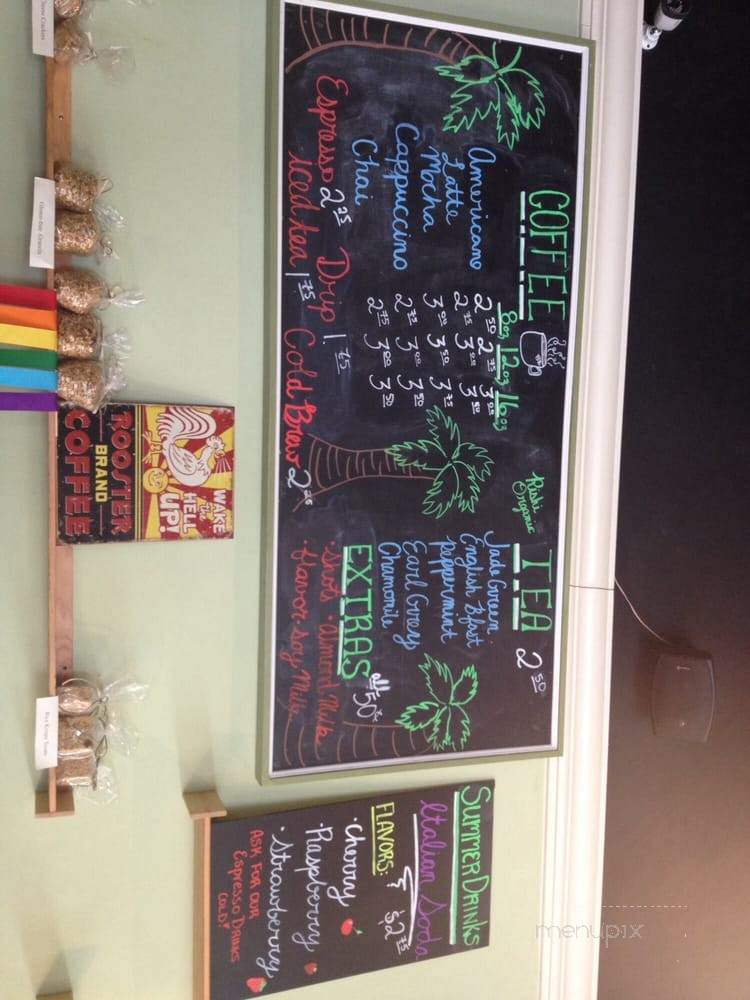 COFFEE
8oz 12oz 16oz
Americano 2.50 2.75 3.25
Latte 2.75 3.00 3.50
Mocha 3.00 3.50 3.75
Cappuccino 2.75 3.00 3.50
Chai 2.75 3.00 3.50
Espresso 2.25 Drip 1.65
iced tea 1.75 Cold Brew
Rishi
Organic
TEA 2.50
Jade Green
English Bfast
Peppermint
Earl Grey
Chamomile
EXTRAS
all 50
• Shots • Almond Milk
• flavor • Soy Milk
SUMMER DRINKS
Italian Soda
$2.75
FLAVORS:
• Cherry
• Raspberry
• Strawberry
ASK FOR OUR
ESPRESSO DRINKS
COLD!
WAKE
the
HELL
UP!
ROOSTER
BRAND
COFFEE
menupix